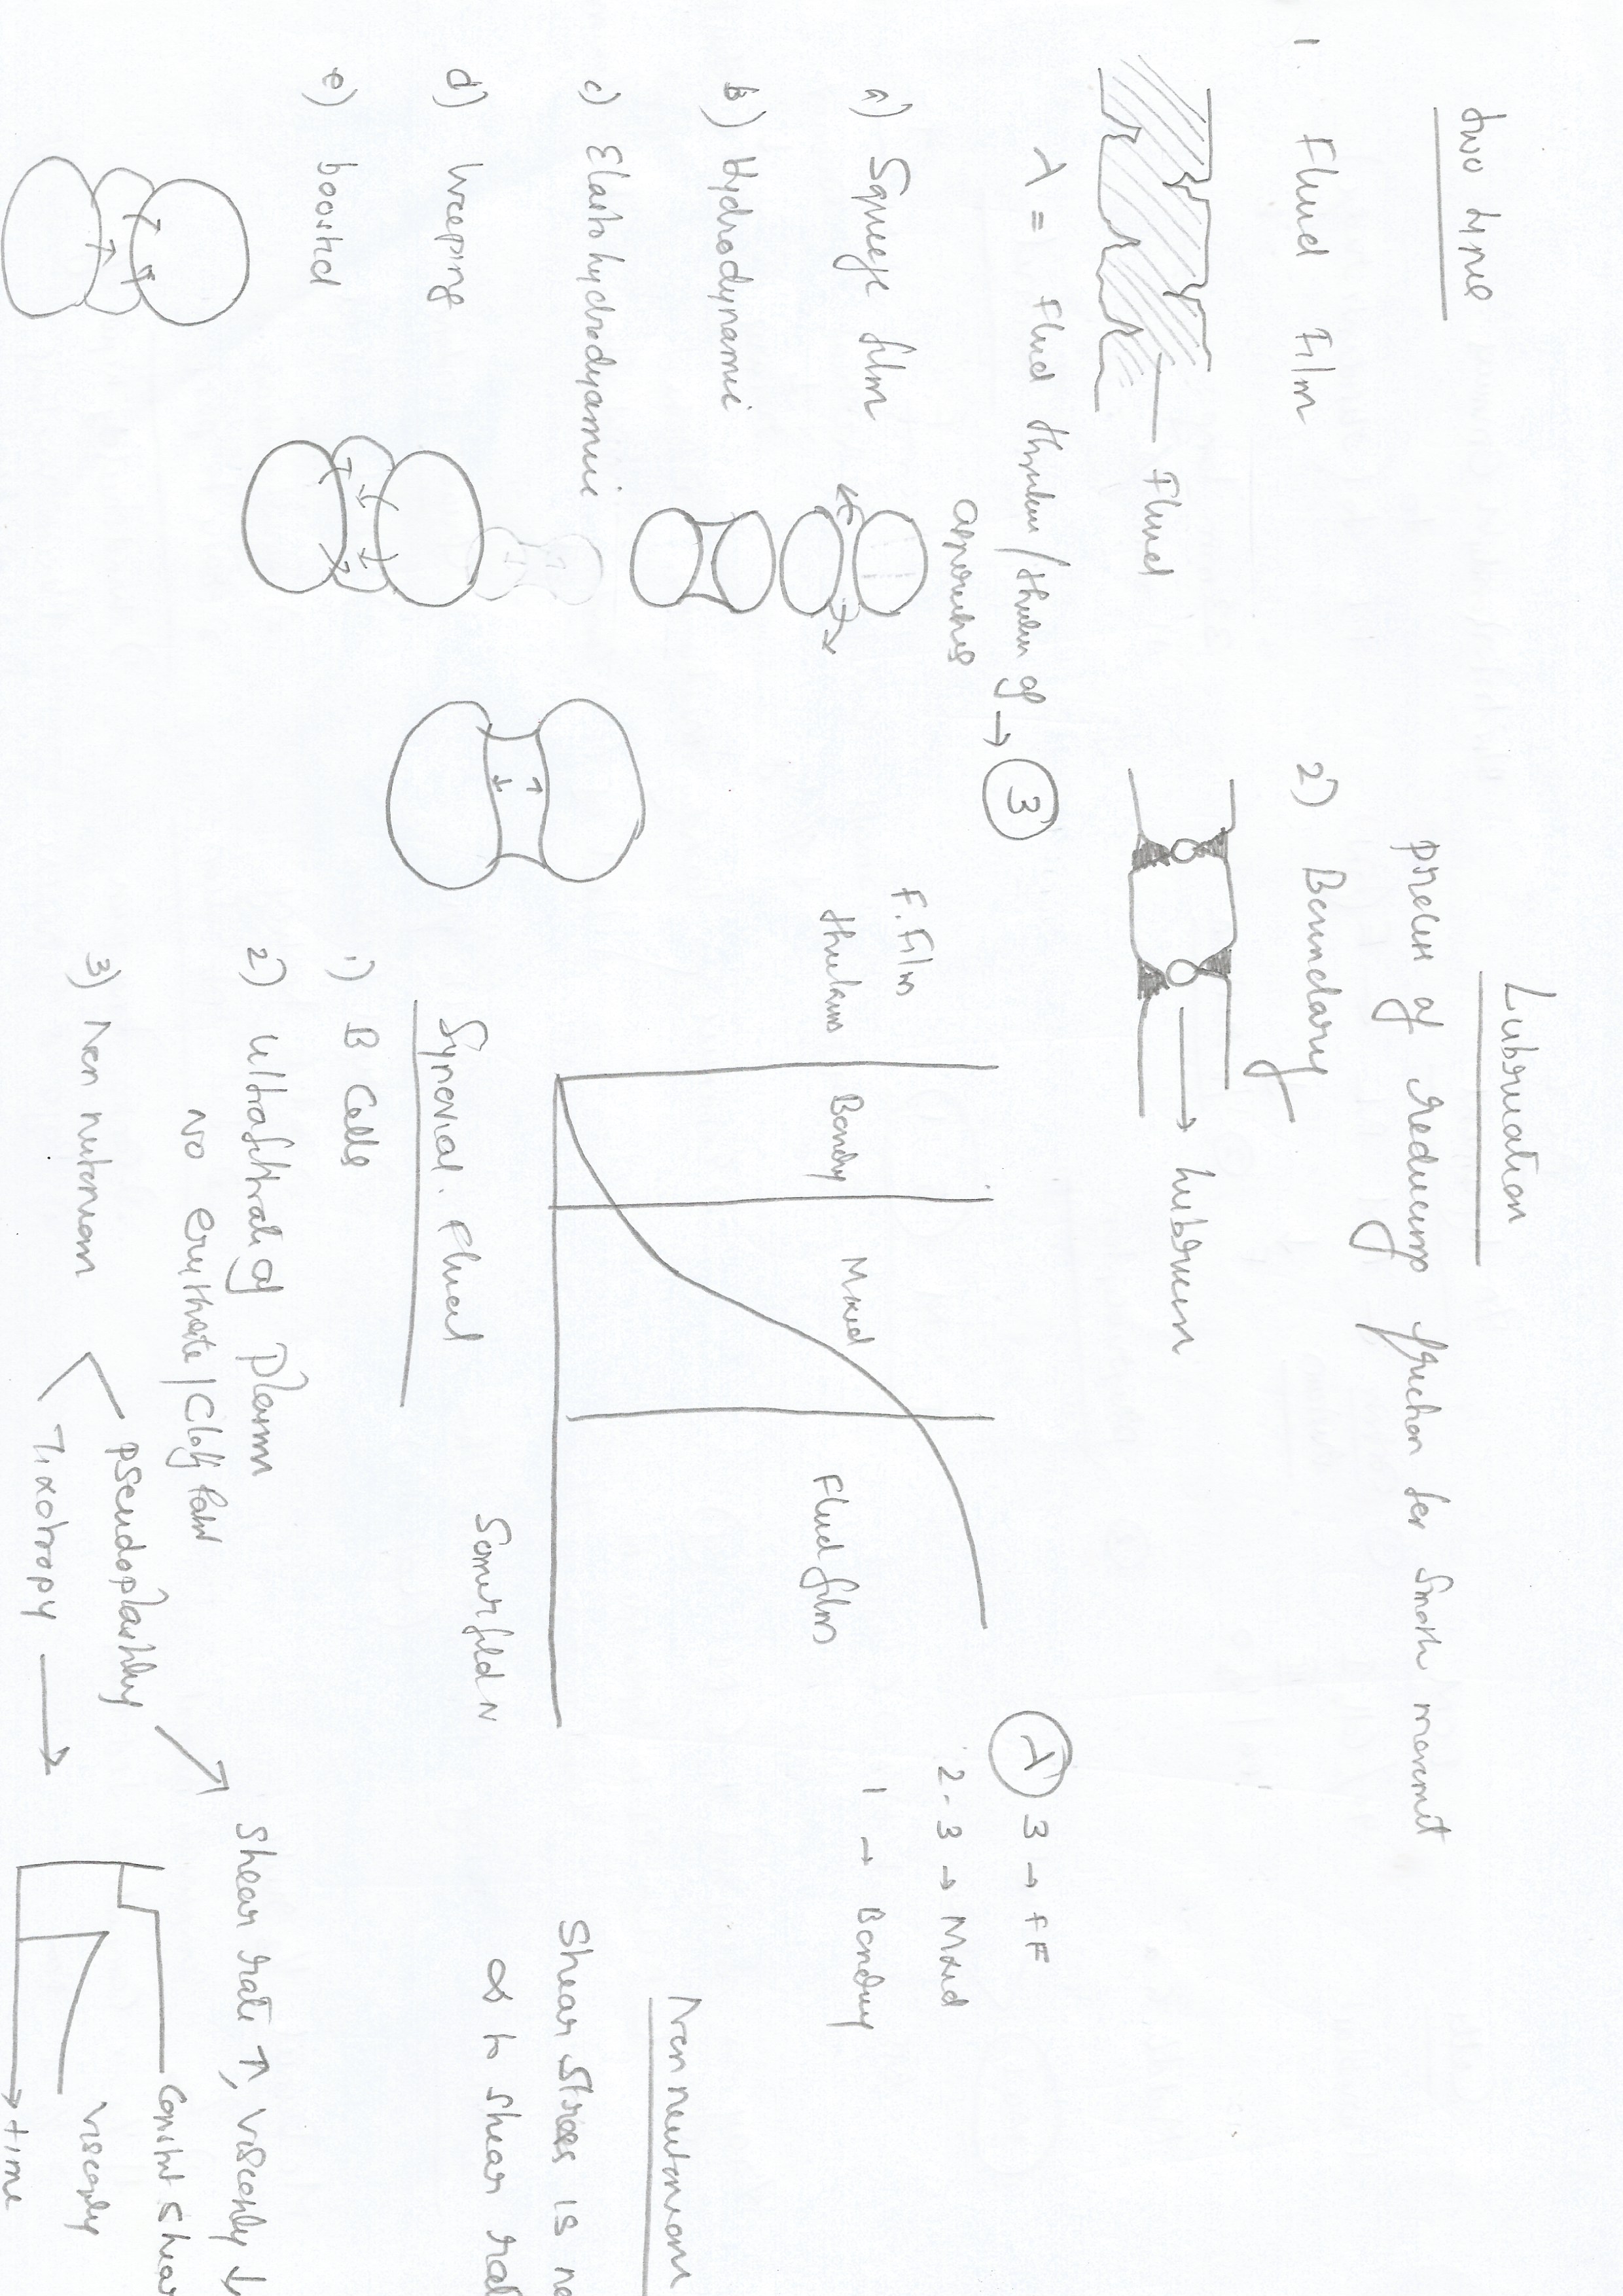 Lubrication
process of reducing friction for smooth movement
two types
1. Fluid Film
2) Boundary
Fluid
Lubricin
λ = Fluid thickness / thickness of → 3
asperities
a) Squeeze film
b) Hydrodynamic
c) Elastohydrodynamic
d) weeping
e) boosted
F. Film
thickness
Boundary
Mixed
Fluid film
Somerfield N
λ 3 → FF
2-3 → Mixed
1 → Boundary
Synovial. Fluid
1) B Cells
2) Ultrafiltrate of plasma
NO erythrocyte / Clotting factor
3) Non newtonian
pseudoplasticity
Thixotropy
Shear rate ↑, viscosity ↓
Constant shear
viscosity
time
Non newtonian
Shear stress is
∝ to shear